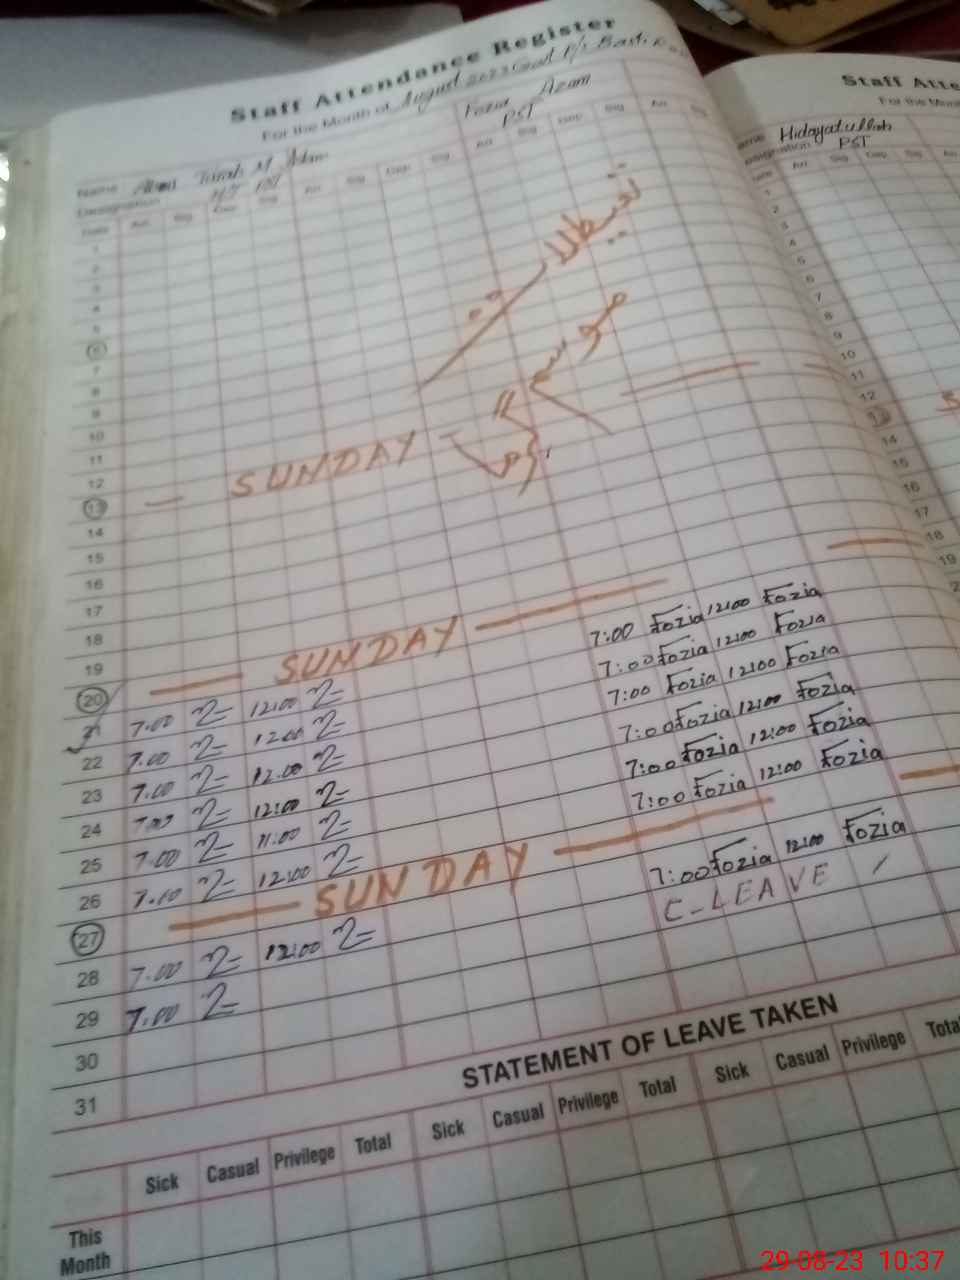 Staff Attendance Register
For the Month of August 2023 Govt P/S Basti
Name Tarab M. Adam Fozia Azam
Designation PST PST
Date Arr Sig Dep Sig Arr Sig Dep Sig Arr Sig Dep Sig Arr Sig
1
2
3
4
5
6
7
8
9
10
11
12
13 — SUNDAY —
تعطیلات
موسم
گرما
14
15
16
17
18
19
20 — SUNDAY —
21 7:00 12:00 7:00 Fozia 12:00 Fozia
22 7:00 12:00 7:00 Fozia 12:00 Fozia
23 7:00 12:00 7:00 Fozia 12:00 Fozia
24 7:00 12:00 7:00 Fozia 12:00 Fozia
25 7:00 11:00 7:00 Fozia 12:00 Fozia
26 7:00 12:00 7:00 Fozia 12:00 Fozia
27 — SUNDAY —
28 7:00 12:00 7:00 Fozia 12:00 Fozia
29 7:00 C-LEAVE /
30
31
STATEMENT OF LEAVE TAKEN
Sick Casual Privilege Total Sick Casual Privilege Total Sick Casual Privilege Total
This
Month
Staff Atte
For the Mon
Name Hidayatullah
Designation PST
Date Arr Sig Dep Sig Arr
1
2
3
4
5
6
7
8
9
10
11
12
13 S
14
15
16
17
18
19
29-08-23 10:37